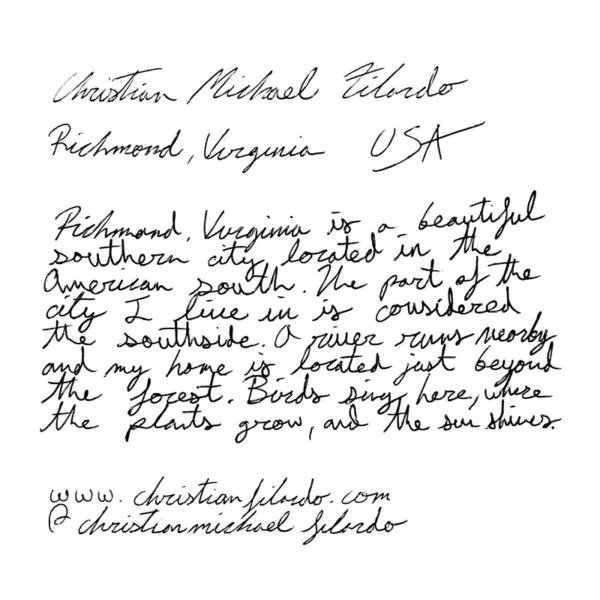 Christian Michael Filardo
Richmond, Virginia USA
Richmond, Virginia is a beautiful
southern city located in the
American south. The part of the
city I live in is considered
the southside. A river runs nearby
and my home is located just beyond
the forest. Birds sing here, where
the plants grow, and the sun shines.
www.christianfilardo.com
@christianmichaelfilardo